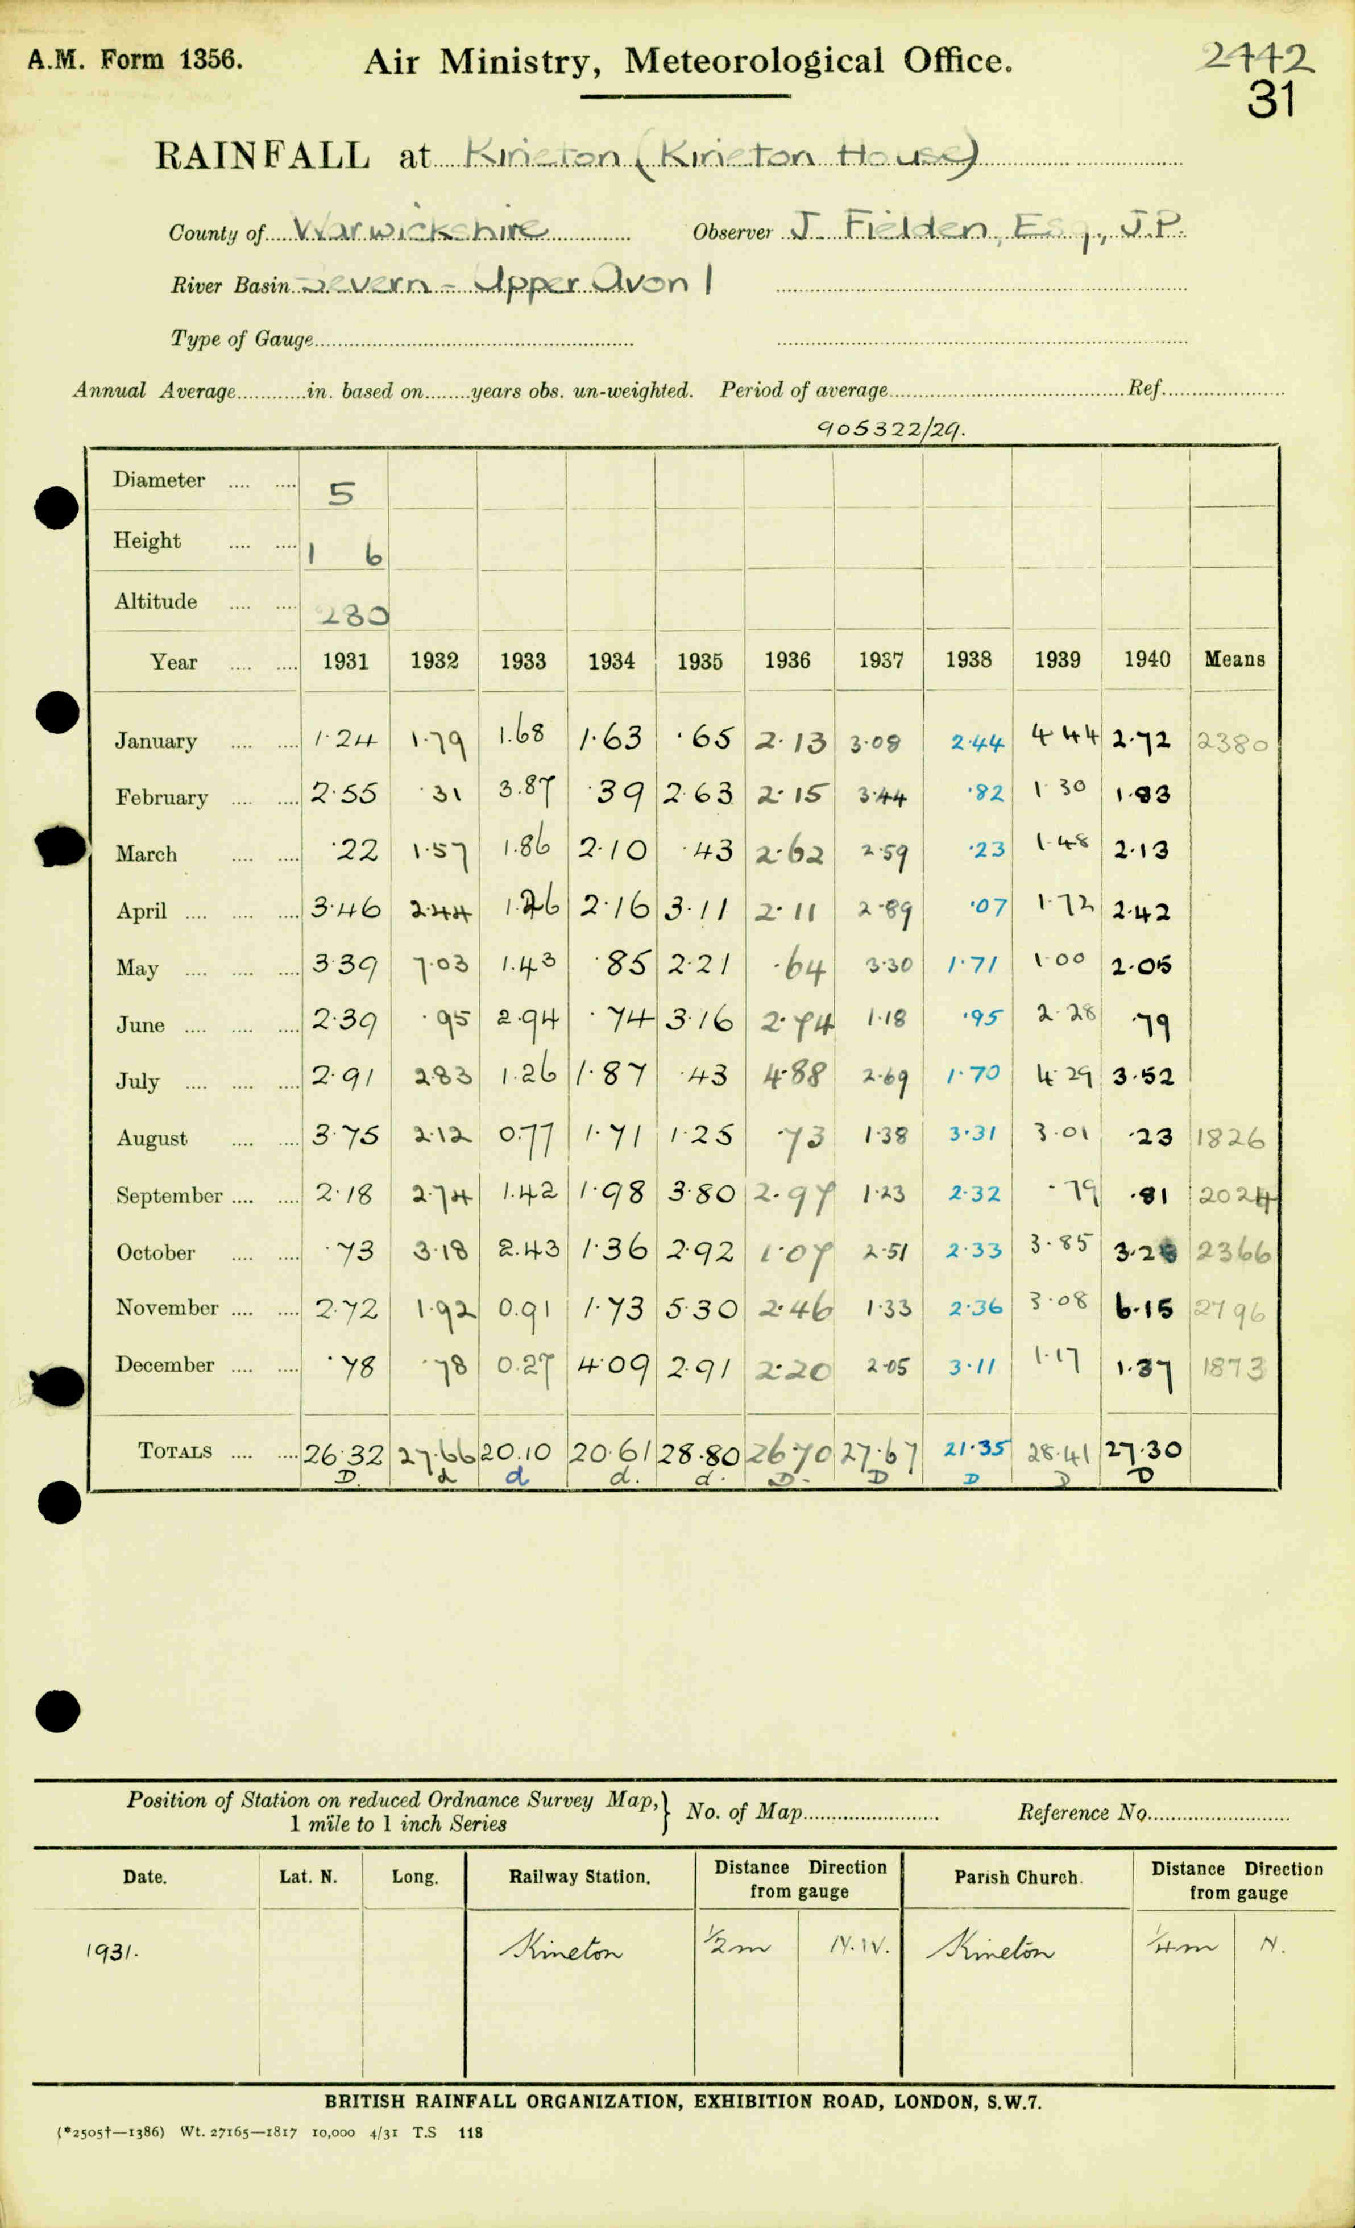 A.M. Form 1356. Air Ministry, Meteorological Office. 2442
31
RAINFALL at Kineton (Kineton House)
County of Warwickshire Observer J. Fielden, Esq., J.P.
River Basin Severn - Upper Avon 1
Type of Gauge
Annual Average in. based on years obs. un-weighted. Period of average Ref.
905322/29.
Diameter 5
Height 1 6
Altitude 280
Year 1931 1932 1933 1934 1935 1936 1937 1938 1939 1940 Means
January 1.24 1.79 1.68 1.63 .65 2.13 3.08 2.44 4.44 2.72 2380
February 2.55 .31 3.87 .39 2.63 2.15 3.44 .82 1.30 1.83
March .22 1.57 1.86 2.10 .43 2.62 2.59 .23 1.48 2.13
April 3.46 2.44 1.26 2.16 3.11 2.11 2.89 .07 1.72 2.42
May 3.39 7.03 1.43 .85 2.21 .64 3.30 1.71 1.00 2.05
June 2.39 .95 2.94 .74 3.16 2.74 1.18 .95 2.28 .79
July 2.91 2.83 1.26 1.87 .43 4.88 2.69 1.70 4.29 3.52
August 3.75 2.12 0.77 1.71 1.25 .73 1.38 3.31 3.01 .23 1826
September 2.18 2.74 1.42 1.98 3.80 2.97 1.23 2.32 .79 .81 2024
October .73 3.18 2.43 1.36 2.92 1.07 2.51 2.33 3.85 3.28 2366
November 2.72 1.92 0.91 1.73 5.30 2.46 1.33 2.36 3.08 6.15 2796
December .78 .78 0.27 4.09 2.91 2.20 2.05 3.11 1.17 1.37 1873
TOTALS 26.32 27.66 20.10 20.61 28.80 26.70 27.67 21.35 28.41 27.30
D. d d d. d. D. D D D D
Position of Station on reduced Ordnance Survey Map, } No. of Map Reference No.
1 mile to 1 inch Series
Date. Lat. N. Long. Railway Station. Distance Direction from gauge Parish Church. Distance Direction from gauge
1931. Kineton 1/2 m N.W. Kineton 1/4 m N.
BRITISH RAINFALL ORGANIZATION, EXHIBITION ROAD, LONDON, S.W.7.
(*2505†—1386) Wt. 27165—1817 10,000 4/31 T.S 118